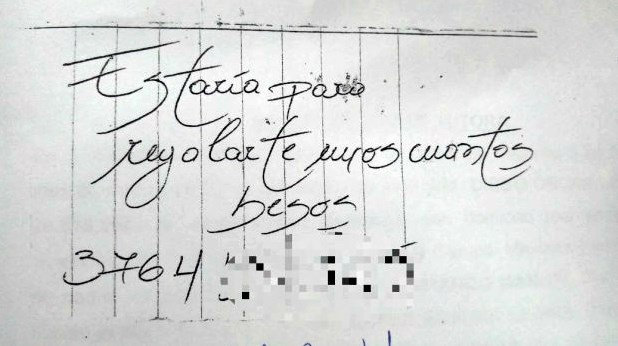 Estaría para
regalarte unos cuantos
besos
3764